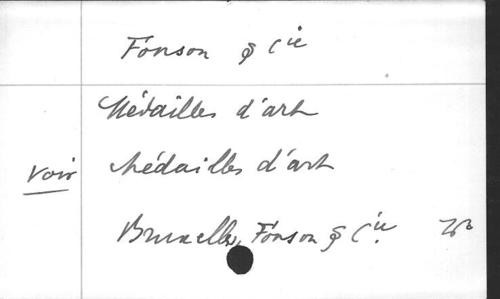 Fonson & Cie
Médailles d'art
voir Médailles d'art
Bruxelles, Fonson & Cie.